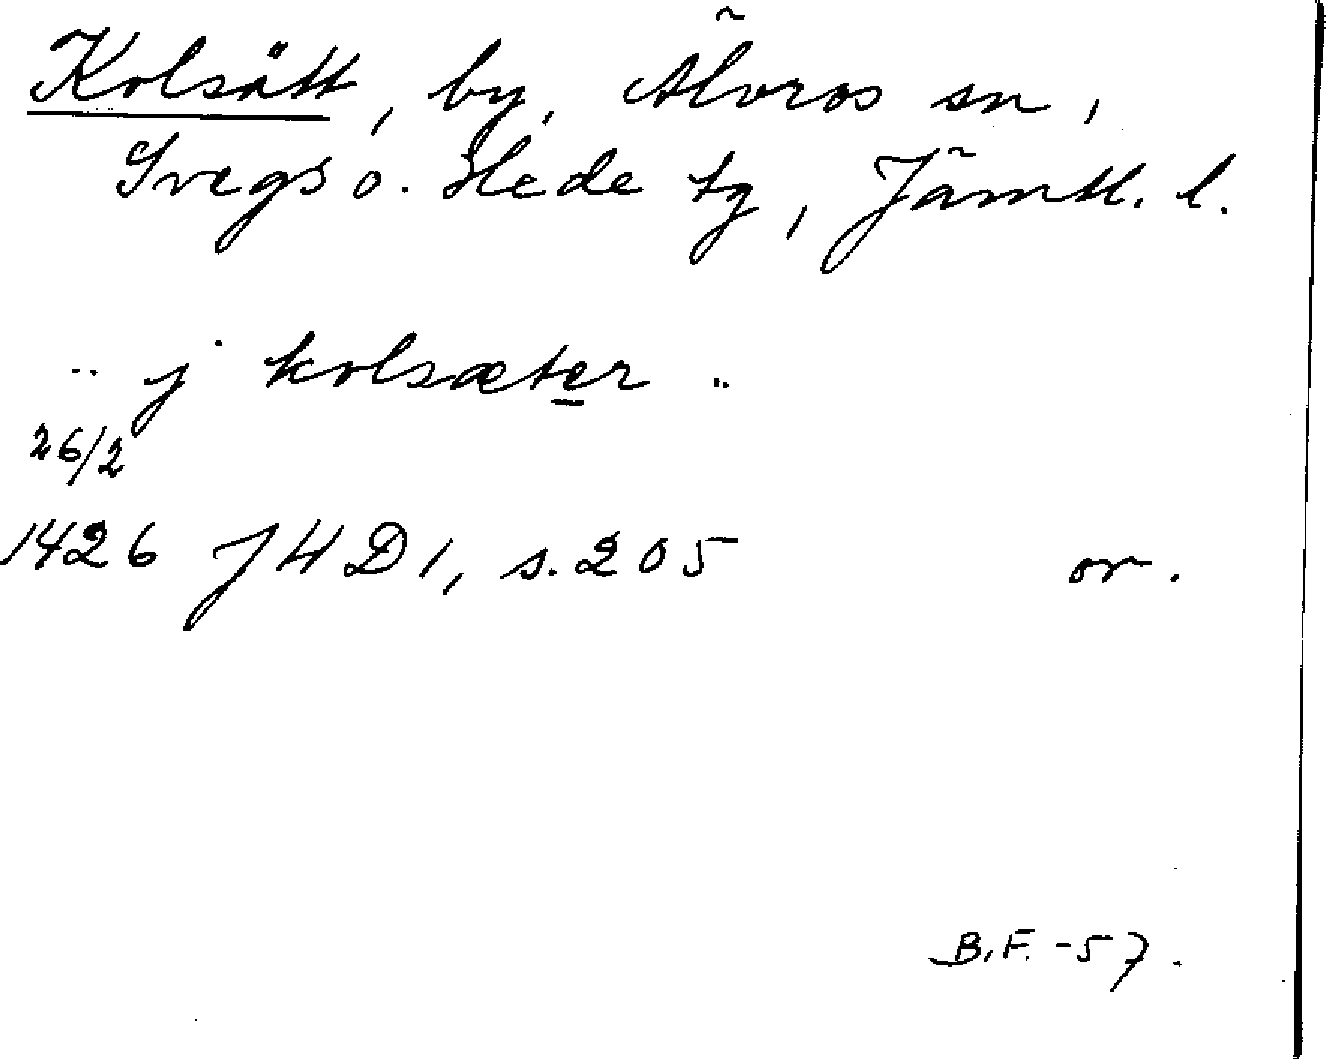 Kolsätt, by, Älvros sn,
Svegs o. Hede tg, Jämtl. l.
.. j kolsæter ..
26/2
1426 JHD 1, s. 205 or.
B.F. -57.